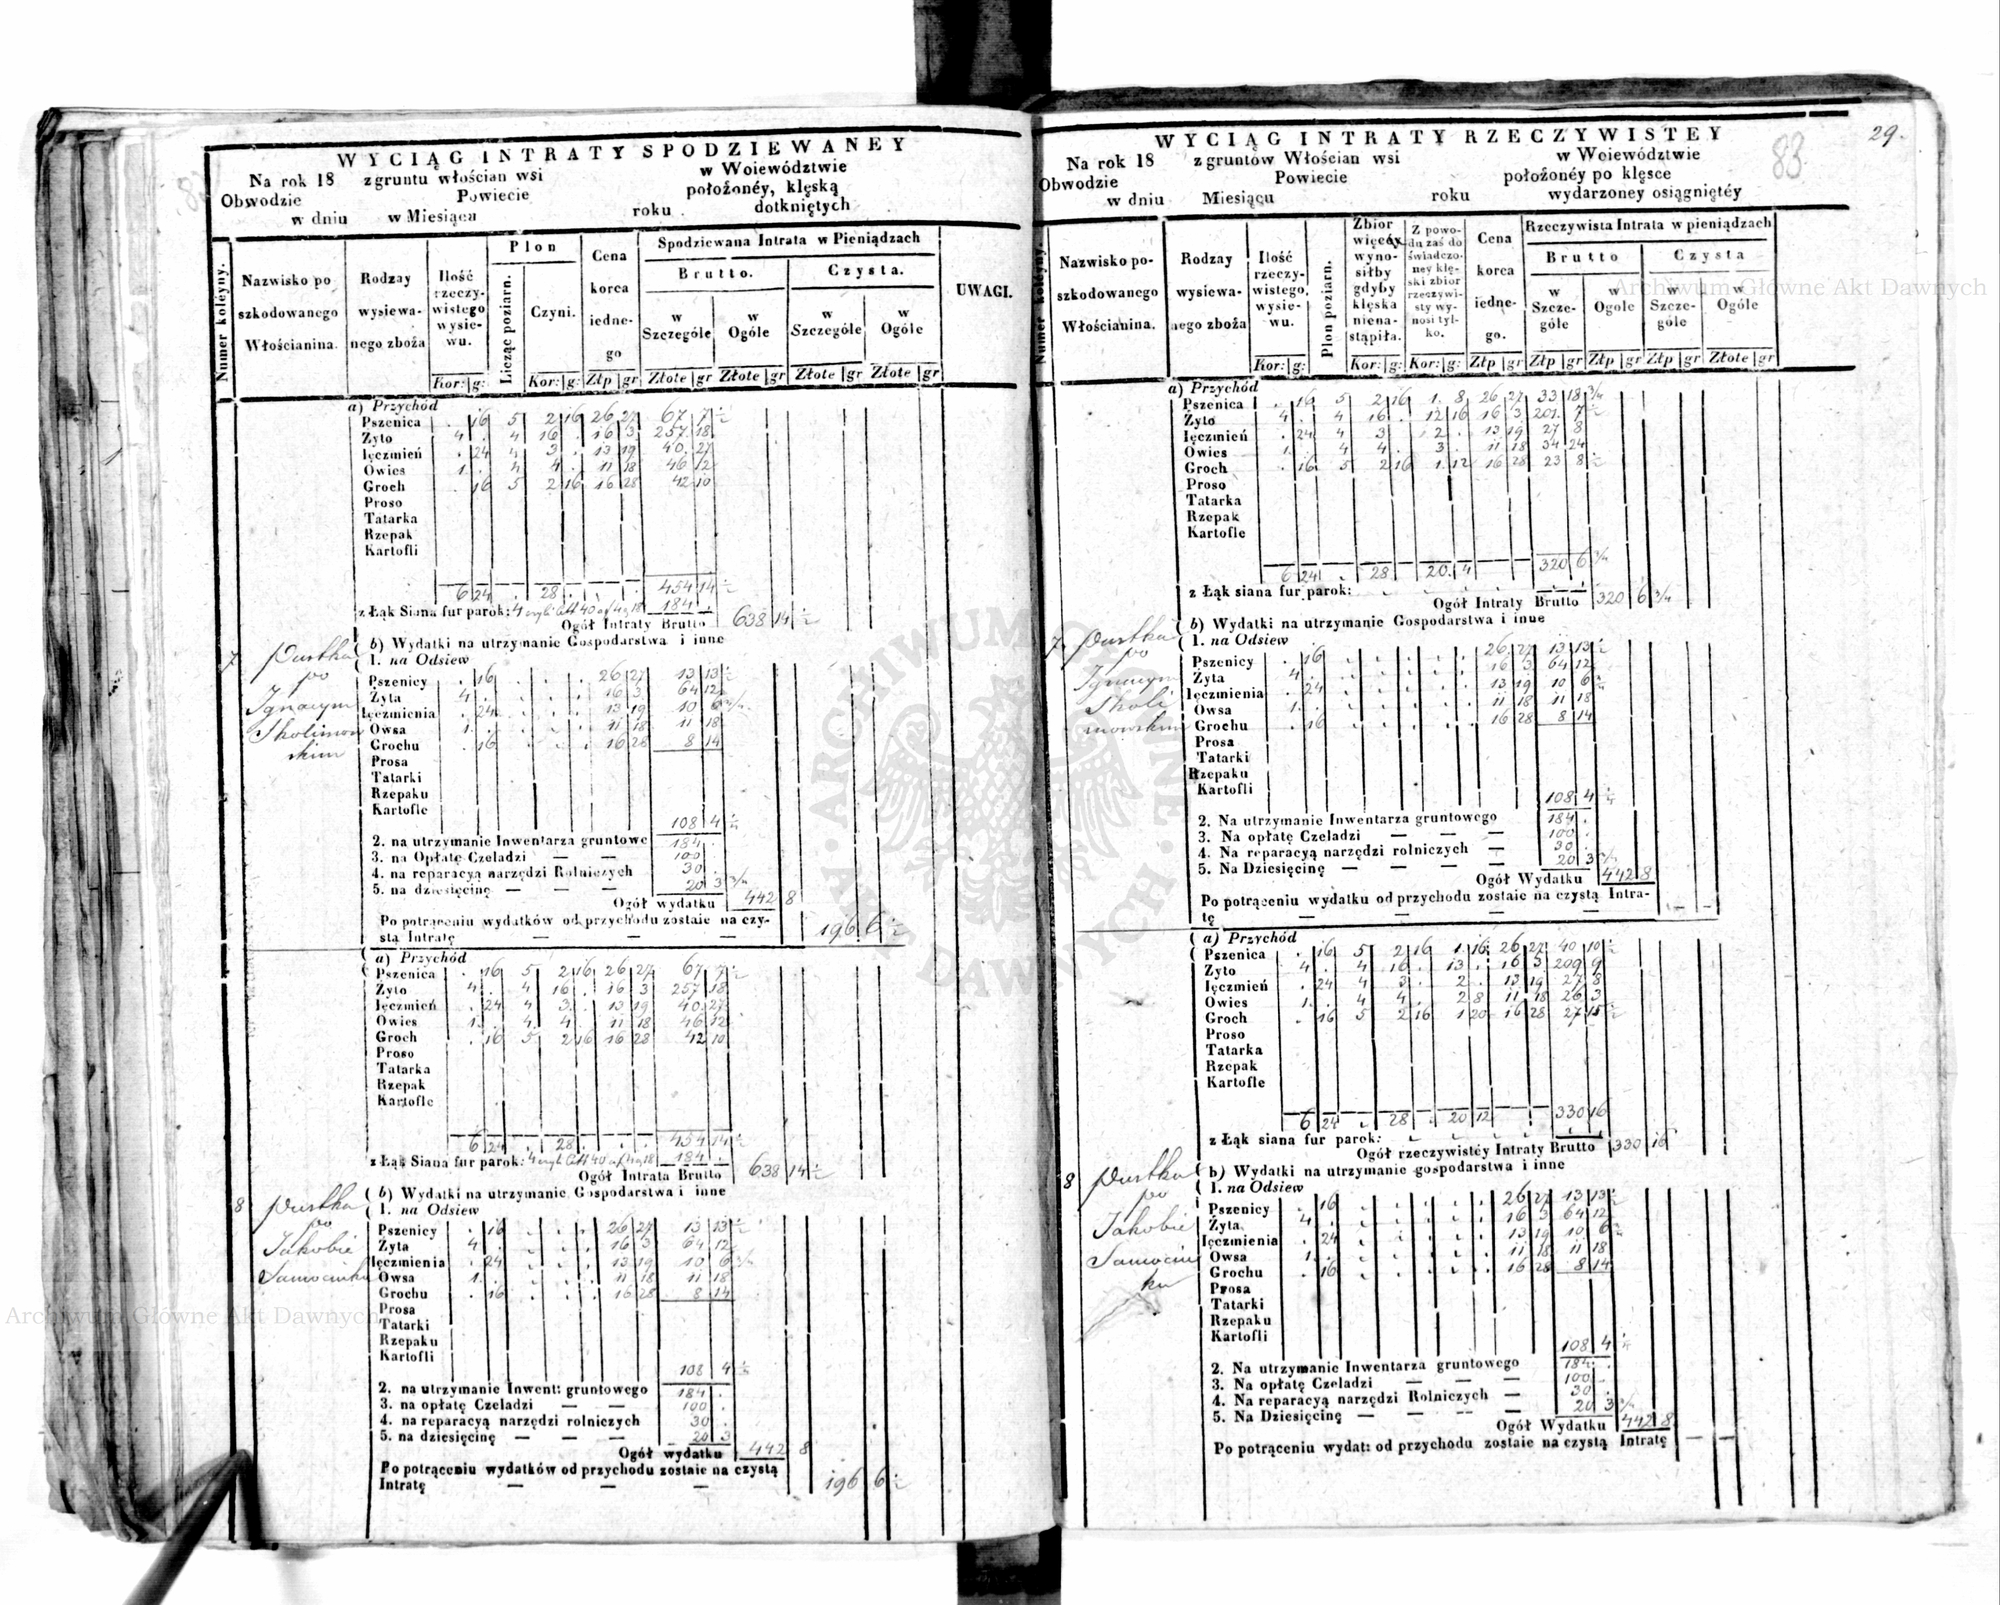 WYCIĄG INTRATY SPODZIEWANEY
Na rok 18 z gruntu włościan wsi w Woiewództwie
Obwodzie Powiecie położonéy, klęską
w dniu w Miesiącu roku dotkniętych
Numer koléyny.
Nazwisko poszkodowanego Włościanina.
Rodzay wysiewanego zboża
Ilość rzeczywistego wysiewu.
Plon
Licząc poziarn.
Czyni.
Cena korca iednego
Spodziewana Intrata w Pieniądzach
Brutto. Czysta.
w Szczególe w Ogóle w Szczególe w Ogóle
UWAGI.
Kor: g: Kor: g: Złp gr Złote gr Złote gr Złote gr Złote gr
a) Przychód
Pszenica . 16 5 2 16 26 27 67 7 ½
Żyto 4 . 4 16 . 16 3 257 18
Ięczmień . 24 4 3 . 13 19 40 27
Owies 1 . 4 4 . 11 18 46 12
Groch . 16 5 2 16 16 28 42 10
Proso
Tatarka
Rzepak
Kartofli
6 24 . 28 . . . 454 14 ½
z Łąk Siana fur parok: 184 .
Ogół Intraty Brutto 638 14 ½
7 Pustka po Ignacym Skolimowskim
b) Wydatki na utrzymanie Gospodarstwa i inne
1. na Odsiew
Pszenicy . 16 26 27 13 13 ½
Żyta 4 . 16 3 64 12
Ięczmienia . 24 13 19 10 6 ¾
Owsa 1 . 11 18 11 18
Grochu . 16 16 28 8 14
Prosa
Tatarki
Rzepaku
Kartofle
108 4 ¼
2. na utrzymanie Inwentarza gruntowe 184 .
3. na Opłatę Czeladzi — — 100 .
4. na reparacyą narzędzi Rolniczych 30 .
5. na dziesięcinę — — — 20 3 ¾
Ogół wydatku 442 8
Po potrąceniu wydatków od przychodu zostaie na czy-
stą Intratę — — — 196 6 ½
a) Przychód
Pszenica . 16 5 2 16 26 27 67 7 ½
Żyto 4 . 4 16 . 16 3 257 18
Ięczmień . 24 4 3 . 13 19 40 27
Owies 1 . 4 4 . 11 18 46 12
Groch . 16 5 2 16 16 28 42 10
Proso
Tatarka
Rzepak
Kartofle
6 24 . 28 . . . 454 14 ½
z Łąk Siana fur parok: 184 .
Ogół Intrata Brutto 638 14 ½
8 Pustka po Jakobie Samociuku
b) Wydatki na utrzymanie Gospodarstwa i inne
1. na Odsiew
Pszenicy . 16 26 27 13 13 ½
Żyta 4 . 16 3 64 12
Ięczmienia . 24 13 19 10 6 ¾
Owsa 1 . 11 18 11 18
Grochu . 16 16 28 8 14
Prosa
Tatarki
Rzepaku
Kartofli
108 4 ¼
2. na utrzymanie Inwent: gruntowego 184 .
3. na opłatę Czeladzi — — 100 .
4. na reparacyą narzędzi rolniczych 30 .
5. na dziesięcinę — — — 20 3
Ogół wydatku 442 8
Po potrąceniu wydatków od przychodu zostaie na czystą
Intratę — — — 196 6 ½
WYCIĄG INTRATY RZECZYWISTEY
83
29.
Na rok 18 z gruntów Włościan wsi w Woiewództwie
Obwodzie Powiecie położonéy po klęsce
w dniu Miesiącu roku wydarzoney osiągniętéy
Numer koléyny.
Nazwisko poszkodowanego Włościanina.
Rodzay wysiewanego zboża
Ilość rzeczywistego, wysiewu.
Plon poziarn.
Zbior więcéy wynosiłby gdyby klęska nienastąpiła.
Z powodu zaś doświadczoney klęski zbior rzeczywisty wynosi tylko.
Cena korca iednego.
Rzeczywista Intrata w pieniądzach
Brutto Czysta
w Szczególe w Ogole w Szczególe w Ogóle
Kor: g: Kor: g: Kor: g: Złp gr Złp gr Złp gr Złp gr Złote gr
a) Przychód
Pszenica . 16 5 2 16 1 8 26 27 33 18 ¾
Żyto 4 . 4 16 . 12 16 16 3 201 7 ½
Ięczmień . 24 4 3 . 2 . 13 19 27 8
Owies 1 . 4 4 . 3 . 11 18 34 24
Groch . 16 5 2 16 1 12 16 28 23 8 ½
Proso
Tatarka
Rzepak
Kartofle
6 24 . 28 . 20 4 320 6 ¾
z Łąk siana fur parok:
Ogół Intraty Brutto 320 6 ¾
7. Pustka po Ignacym Skolimowskim
b) Wydatki na utrzymanie Gospodarstwa i inne
1. na Odsiew
Pszenicy . 16 26 27 13 13 ½
Żyta 4 . 16 3 64 12
Ięczmienia . 24 13 19 10 6
Owsa 1 . 11 18 11 18
Grochu . 16 16 28 8 14
Prosa
Tatarki
Rzepaku
Kartofli
108 4 ¼
2. Na utrzymanie Inwentarza gruntowego 184 .
3. Na opłatę Czeladzi — — — 100 .
4. Na reparacyą narzędzi rolniczych — 30 .
5. Na Dziesięcinę — — — — 20 3 ¾
Ogół Wydatku 442 8
Po potrąceniu wydatku od przychodu zostaie na czystą Intra-
tę — — — — — —
a) Przychód
Pszenica . 16 5 2 16 1 16 26 27 40 10 ½
Żyto 4 . 4 16 . 13 . 16 3 209 9
Ięczmień . 24 4 3 . 2 . 13 19 27 8
Owies 1 . 4 4 . 2 8 11 18 26 3
Groch . 16 5 2 16 1 20 16 28 27 15 ½
Proso
Tatarka
Rzepak
Kartofle
6 24 . 28 . 20 12 330 16
z Łąk siana fur parok:
Ogół rzeczywistéy Intraty Brutto 330 16
8 Pustka po Jakobie Samociuku
b) Wydatki na utrzymanie gospodarstwa i inne
1. na Odsiew
Pszenicy . 16 26 27 13 13 ½
Żyta 4 . 16 3 64 12
Ięczmienia . 24 13 19 10 6
Owsa 1 . 11 18 11 18
Grochu . 16 16 28 8 14
Prosa
Tatarki
Rzepaku
Kartofli
108 4 ¼
2. Na utrzymanie Inwentarza gruntowego 184 .
3. Na opłatę Czeladzi — — — 100 .
4. Na reparacyą narzędzi Rolniczych — 30 .
5. Na Dziesięcinę — — — — 20 3 ¾
Ogół Wydatku 442 8
Po potrąceniu wydat: od przychodu zostaie na czystą Intratę — —
Archiwum Główne Akt Dawnych
Archiwum Główne Akt Dawnych
ARCHIWUM GŁÓWNE AKT DAWNYCH